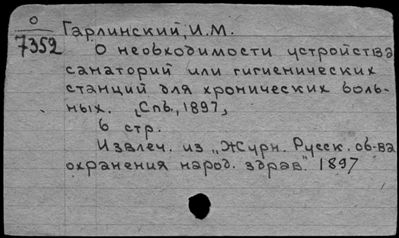 О
7352
Гарлинский, И.М.
О необходимости устройства
санаторий или гигиенических
станций для хронических боль-
ных. [Спб., 1897,]
6 стр.
Извлеч. из „Журн. Русск. об-ва
охранения народ. здрав." 1897